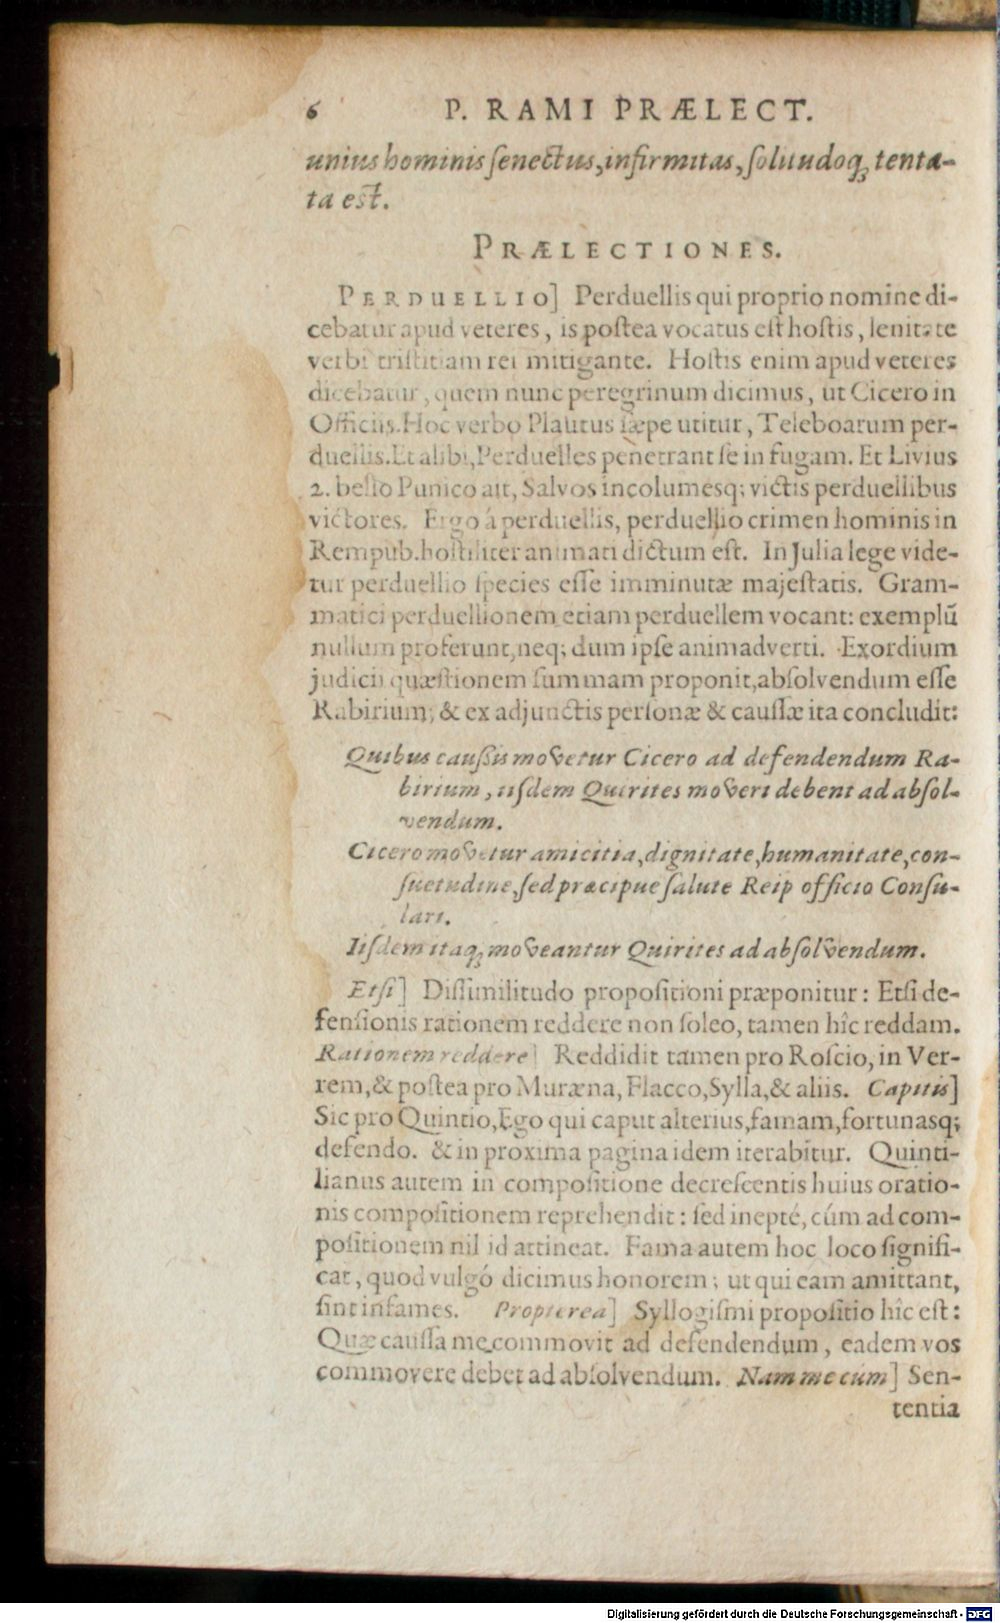 6 P. RAMI PRÆLECT.
unius hominis ſenectus, infirmitas, ſolitudoq́; tenta-
ta eſt.
PRÆLECTIONES.
PERDUELLIO] Perduellis qui proprio nomine di-
cebatur apud veteres, is poſtea vocatus eſt hoſtis, lenitate
verbi triſtitiam rei mitigante. Hoſtis enim apud veteres
dicebatur, quem nunc peregrinum dicimus, ut Cicero in
Officiis. Hoc verbo Plautus ſæpe utitur, Teleboarum per-
duellis. Et alibi, Perduelles penetrant ſe in fugam. Et Livius
2. bello Punico ait, Salvos incolumesq; victis perduellibus
victores. Ergo á perduellis, perduellio crimen hominis in
Rempub. hoſtiliter animati dictum eſt. In Julia lege vide-
tur perduellio ſpecies eſſe imminutæ majeſtatis. Gram-
matici perduellionem etiam perduellem vocant: exemplū
nullum proferunt, neq; dum ipſe animadverti. Exordium
judicii quæſtionem ſummam proponit, abſolvendum eſſe
Rabirium; & ex adjunctis perſonæ & cauſſæ ita concludit:
Quibus cauſſis movetur Cicero ad defendendum Ra-
birium, iiſdem Quirites moveri debent ad abſol-
vendum.
Cicero movetur amicitia, dignitate, humanitate, con-
ſuetudine, ſed præcipue ſalute Reip officio Conſu-
lari.
Iiſdem itaq́; moveantur Quirites ad abſolvendum.
Etſi] Diſſimilitudo propoſitioni præponitur: Etſi de-
fenſionis rationem reddere non ſoleo, tamen hîc reddam.
Rationem reddere] Reddidit tamen pro Roſcio, in Ver-
rem, & poſtea pro Muræna, Flacco, Sylla, & aliis. Capitis]
Sic pro Quintio, Ego qui caput alterius, famam, fortunasq;
defendo. & in proxima pagina idem iterabitur. Quinti-
lianus autem in compoſitione decreſcentis huius oratio-
nis compoſitionem reprehendit: ſed inepté, cúm ad com-
poſitionem nil id attineat. Fama autem hoc loco ſignifi-
cat, quod vulgó dicimus honorem; ut qui eam amittant,
ſint infames. Propterea] Syllogiſmi propoſitio hîc eſt:
Quæ cauſſa me commovit ad defendendum, eadem vos
commovere debet ad abſolvendum. Nam me cùm] Sen-
tentia
Digitalisierung gefördert durch die Deutsche Forschungsgemeinschaft - DFG